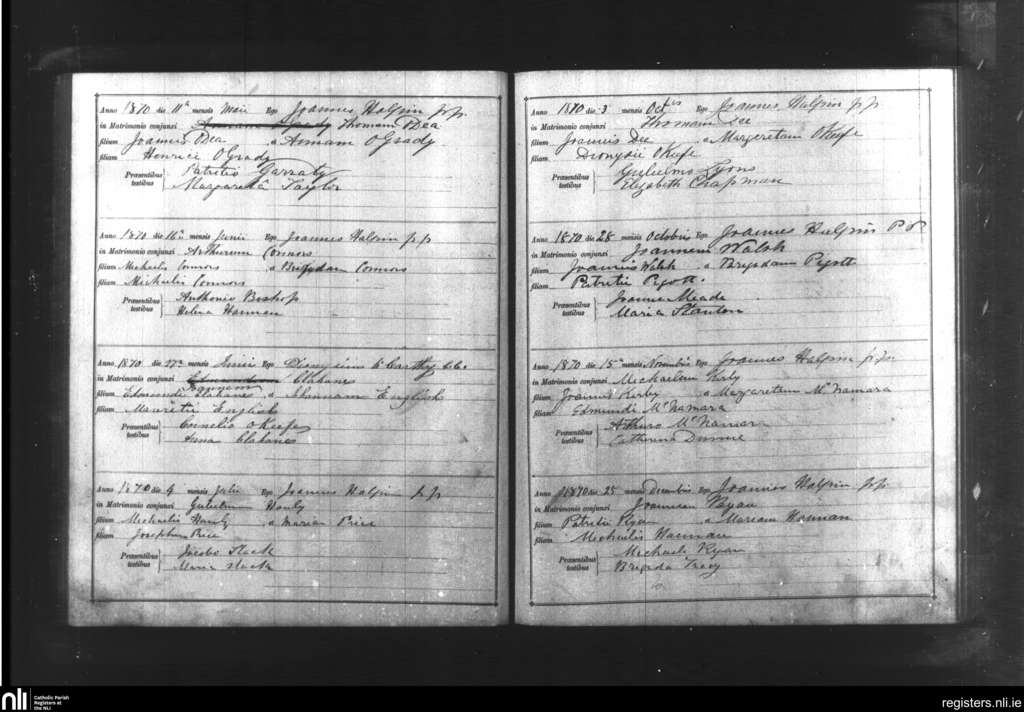 Anno 1870 die 11ª mensis Maii Ego Joannes Halpin p.p.
in Matrimonio conjunxi Thomam O'Dea
filium Joannis O'Dea & Annam O'Grady
filiam Henrici O'Grady
Præsentibus testibus Patritio Garraty
Margaretâ Taylor
Anno 1870 die 16ª mensis Junii Ego Joannes Halpin p.p.
in Matrimonio conjunxi Arthurum Connors
filium Michaelis Connors & Brigidam Connors
filiam Michaelis Connors
Præsentibus testibus Anthonio Bishop
Helena Hannan
Anno 1870 die 27ª mensis Junii Ego Dionysius McCarthy c.c.
in Matrimonio conjunxi Clahane
filium Edmundi Clahane & Johannam English
filiam Mauritii English
Præsentibus testibus Cornelio O'Keefe
Anna Clahane
Anno 1870 die 9 mensis Julii Ego Joannes Halpin p.p.
in Matrimonio conjunxi Gulielmum Hauty
filium Michaelis Hauty & Mariam Price
filiam Josephum Price
Præsentibus testibus Jacobo Slack
Maria Slack
Anno 1870 die 3 mensis Octris Ego Joannes Halpin p.p.
in Matrimonio conjunxi Thomam Dee
filium Joannis Dee & Margaretam O'Keefe
filiam Dionysii O'Keefe
Præsentibus testibus Gulielmo Lyons
Elizabeth Chapman
Anno 1870 die 28 mensis Octobris Ego Joannes Halpin P.P.
in Matrimonio conjunxi Joannem Walsh
filium Joannis Walsh & Brigidam Pigott
filiam Patritii Pigott.
Præsentibus testibus Joanne Meade
Maria Stanton
Anno 1870 die 15ª mensis Novembris Ego Joannes Halpin p.p.
in Matrimonio conjunxi Michaelem Kirby
filium Joannis Kirby & Margaretam McNamara
filiam Edmundi McNamara
Præsentibus testibus Arthuro McNamara
Catherina
Anno 1870 die 25 mensis Decembris Ego Joannes Halpin p.p.
in Matrimonio conjunxi Joannem Ryan
filium Patritii Ryan & Mariam Hannan
filiam Michaelis Hannan
Præsentibus testibus Michaele Ryan
Brigida Tracy
nli
Catholic Parish
Registers at
the NLI
registers.nli.ie